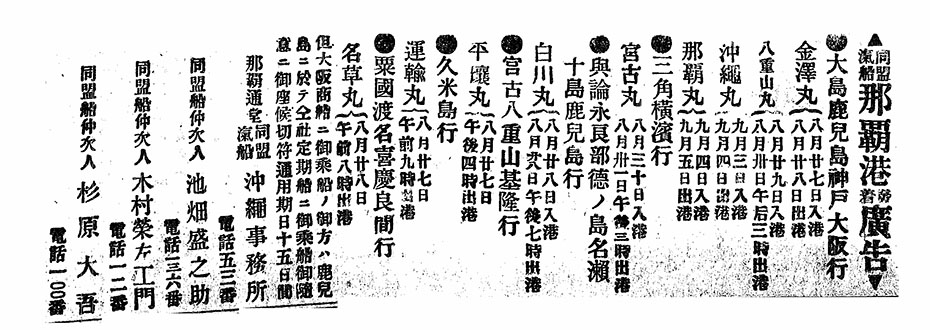 ▲同盟滊船那覇港発着廣告▼
●大島鹿兒島神戸大阪行
金澤丸 八月廿七日入港 八月廿八日出港
八重山丸 八月廿九日入港 八月卅日午后三時出港
沖繩丸 九月三日入港 九月四日出港
那覇丸 九月四日入港 九月五日出港
●三角橫濱行
宮古丸 八月三十日入港 八月卅一日午後三時出港
●與論永良部德ノ島名瀬
十島鹿兒島行
白川丸 八月廿八日入港 八月廿八日午後七時出港
●宮古八重山基隆行
平壤丸 八月廿七日 午後四時出港
●久米島行
運輸丸 八月廿七日 午前九時出港
●粟國渡名喜慶良間行
名草丸 八月廿八日 午前八時出港
但大阪商船ニ御乘船ノ御方ハ鹿兒
島ニ於テ仝社定期船ニ御乘船御隨
意ニ御座候切符通用期日十五日間
那覇通堂 同盟滊船 沖繩事務所
電話五三番
同盟船仲次人 池畑盛之助
電話一三六番
同盟船仲次人 木村榮左工門
電話一二番
同盟船仲次人 杉原大吾
電話一〇〇番